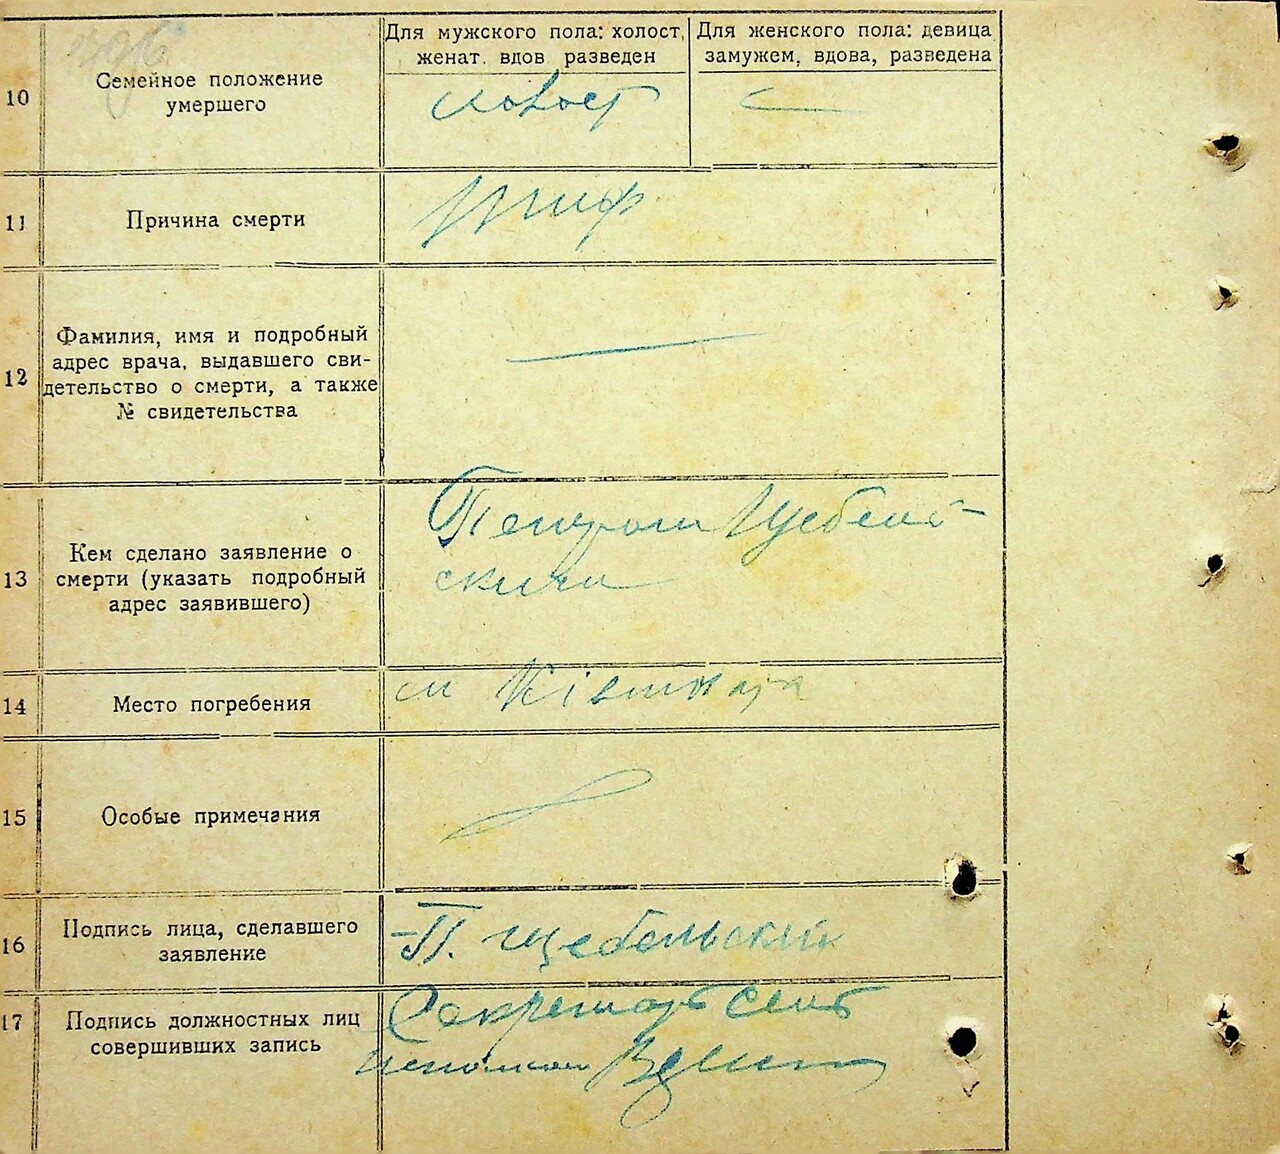 496
Для мужского пола: холост,
женат, вдов разведен
Для женского пола: девица
замужем, вдова, разведена
10
Семейное положение
умершего
холост
11
Причина смерти
тиф
12
Фамилия, имя и подробный
адрес врача, выдавшего сви-
детельство о смерти, а также
№ свидетельства
13
Кем сделано заявление о
смерти (указать подробный
адрес заявившего)
Петром Щебель-
ским
14
Место погребения
м
15
Особые примечания
16
Подпись лица, сделавшего
заявление
П. Щебельский
17
Подпись должностных лиц
совершивших запись
Секретарь Сель
исполком